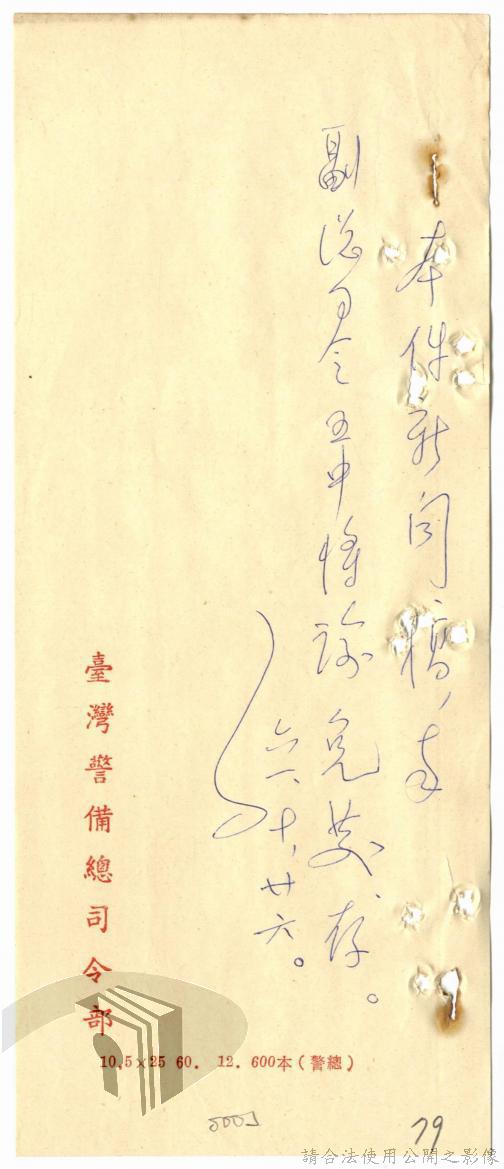 本件新聞稿,奉
副總司令王中將諭免發,存。
六一、十、廿六。
臺灣警備總司令部
10.5×25 60. 12. 600本(警總)
79
請合法使用公開之影像